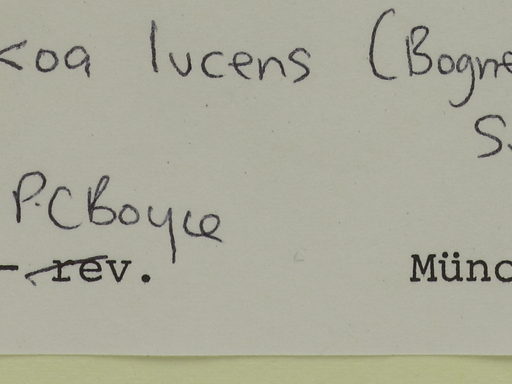 koa lucens (Bogne
S.
P.C Boyce
- rev. Münc